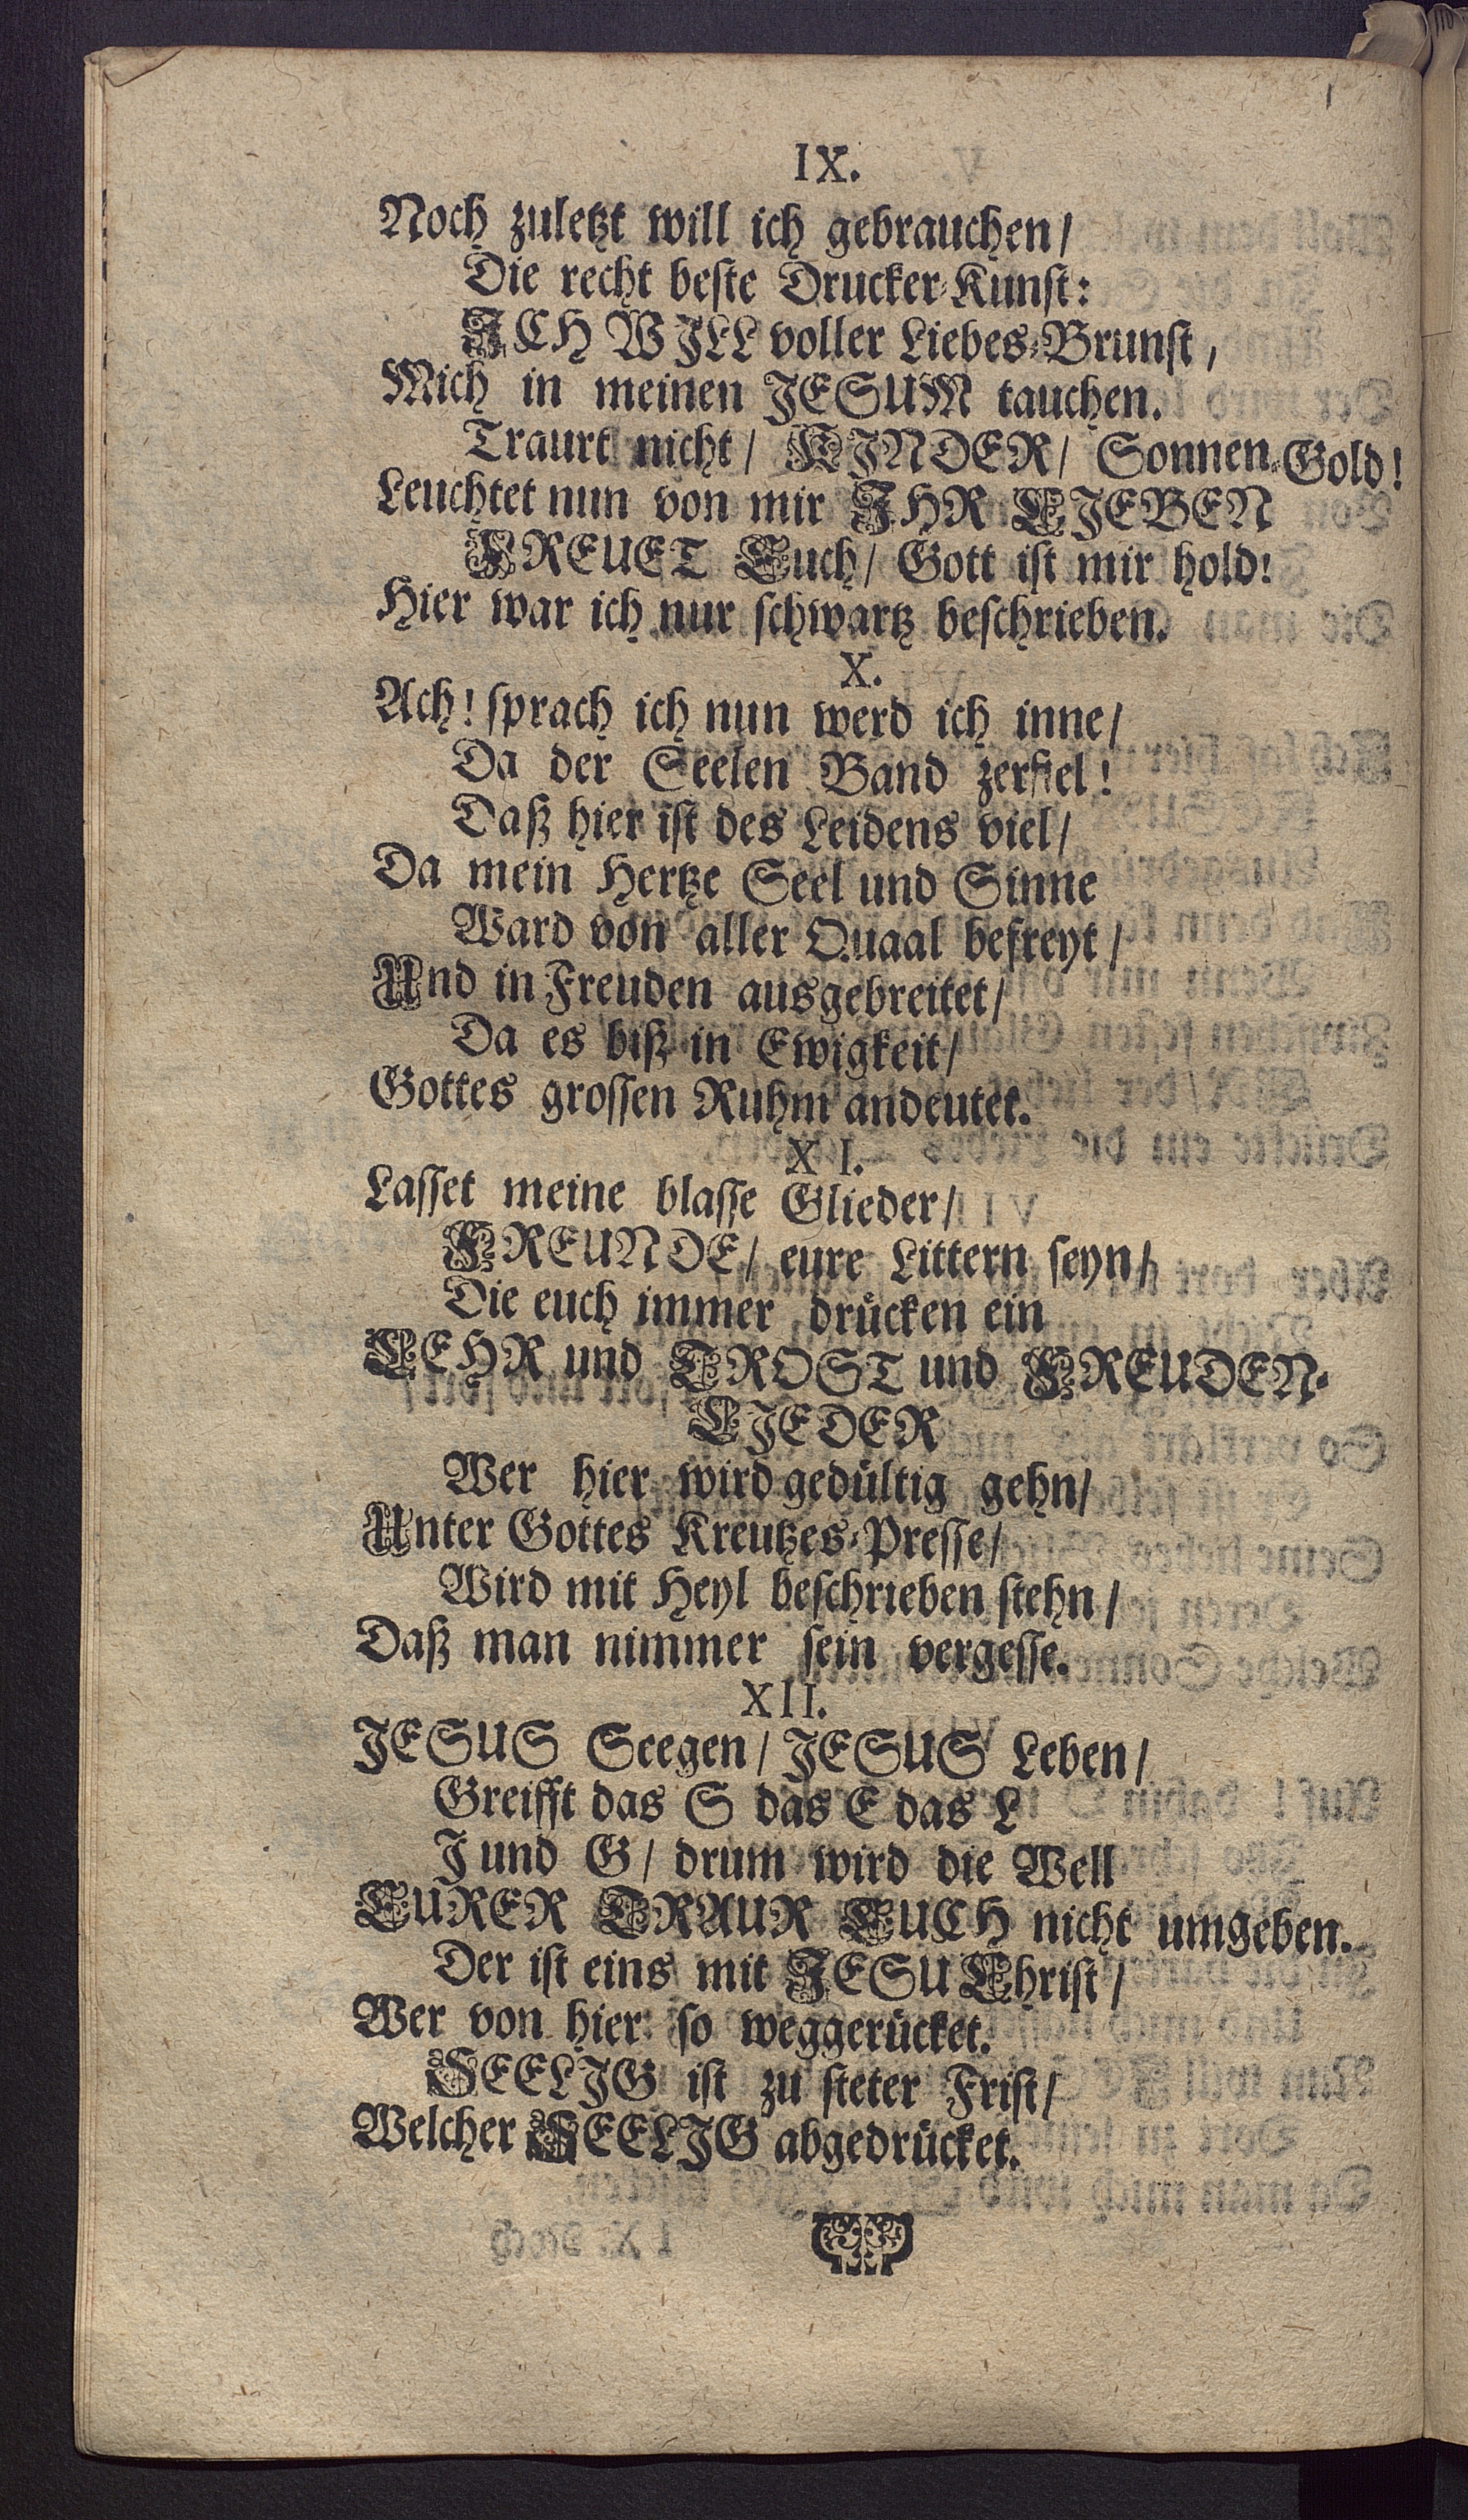 IX.
Noch zuletzt will ich gebrauchen/
Die recht beste Drucker-Kunst:
JCH WJLL voller Liebes-Brunst,
Mich in meinen JESUM tauchen.
Traurt nicht/ KJNDER/ Sonnen-Gold!
Leuchtet nun von mir JHR LJEBEN
FREUET Euch/ Gott ist mir hold!
Hier war ich nur schwartz beschrieben.
X.
Ach! sprach ich nun werd ich inne/
Da der Seelen Band zerfiel!
Daß hier ist des Leidens viel/
Da mein Hertze Seel und Sinne
Ward von aller Quaal befreyt/
Und in Freuden ausgebreitet/
Da es biß in Ewigkeit/
Gottes grossen Ruhm andeutet.
XI.
Lasset meine blasse Glieder/
FREUNDE/ eure Littern seyn/
Die euch immer drücken ein
LEHR und TROST und FREUDEN-
LJEDER
Wer hier wird gedültig gehn/
Unter Gottes Kreutzes-Presse/
Wird mit Heyl beschrieben stehn/
Daß man nimmer sein vergesse.
XII.
JESUS Seegen/ JESUS Leben/
Greifft das S das E das L
J und G/ drum wird die Well
EURER TRAUR EUCH nicht umgeben.
Der ist eins mit JESU Christ/
Wer von hier so weggerücket.
SEELJG ist zu steter Frist/
Welcher SEELJG abgedrücket.